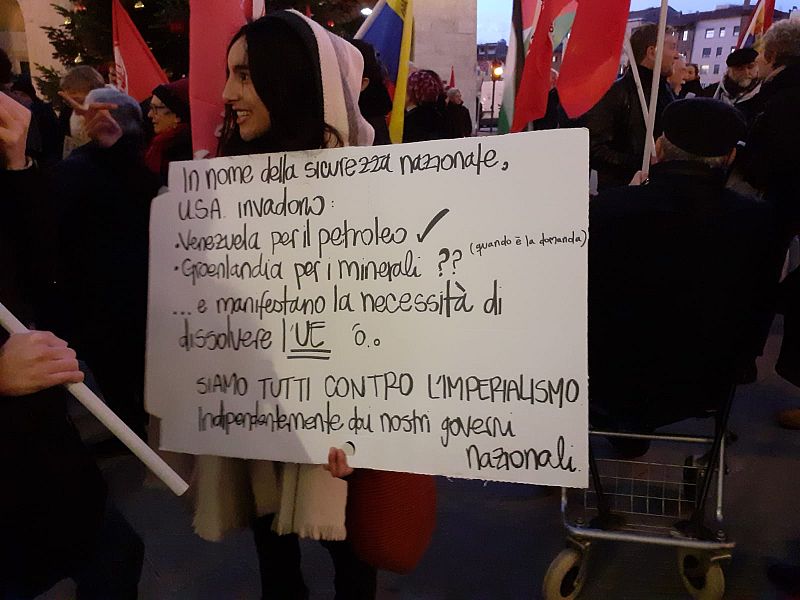 In nome della sicurezza nazionale,
U.S.A. invadono:
• Venezuela per il petroleo ✓
• Groenlandia per i minerali ?? (quando è la domanda)
... e manifestano la necessità di
dissolvere l'UE
SIAMO TUTTI CONTRO L'IMPERIALISMO
Indipendentemente dai nostri governi
nazionali.